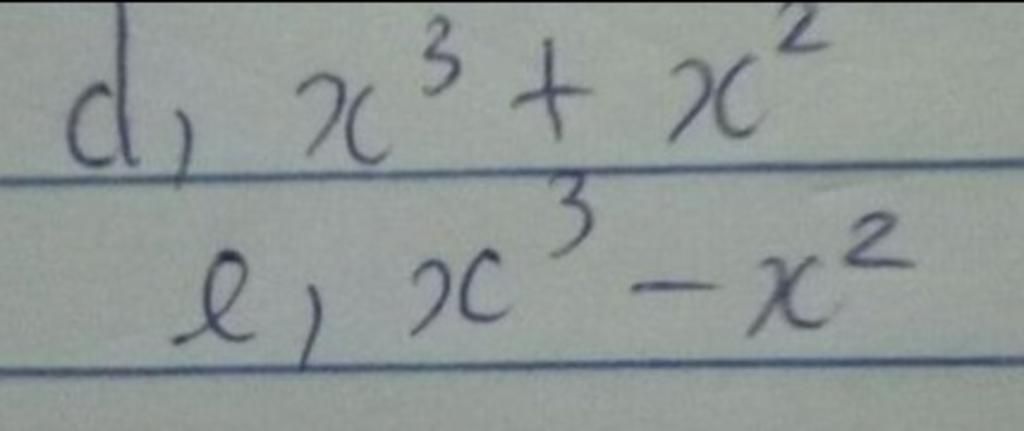 d, x³ + x²
e, x³ - x²